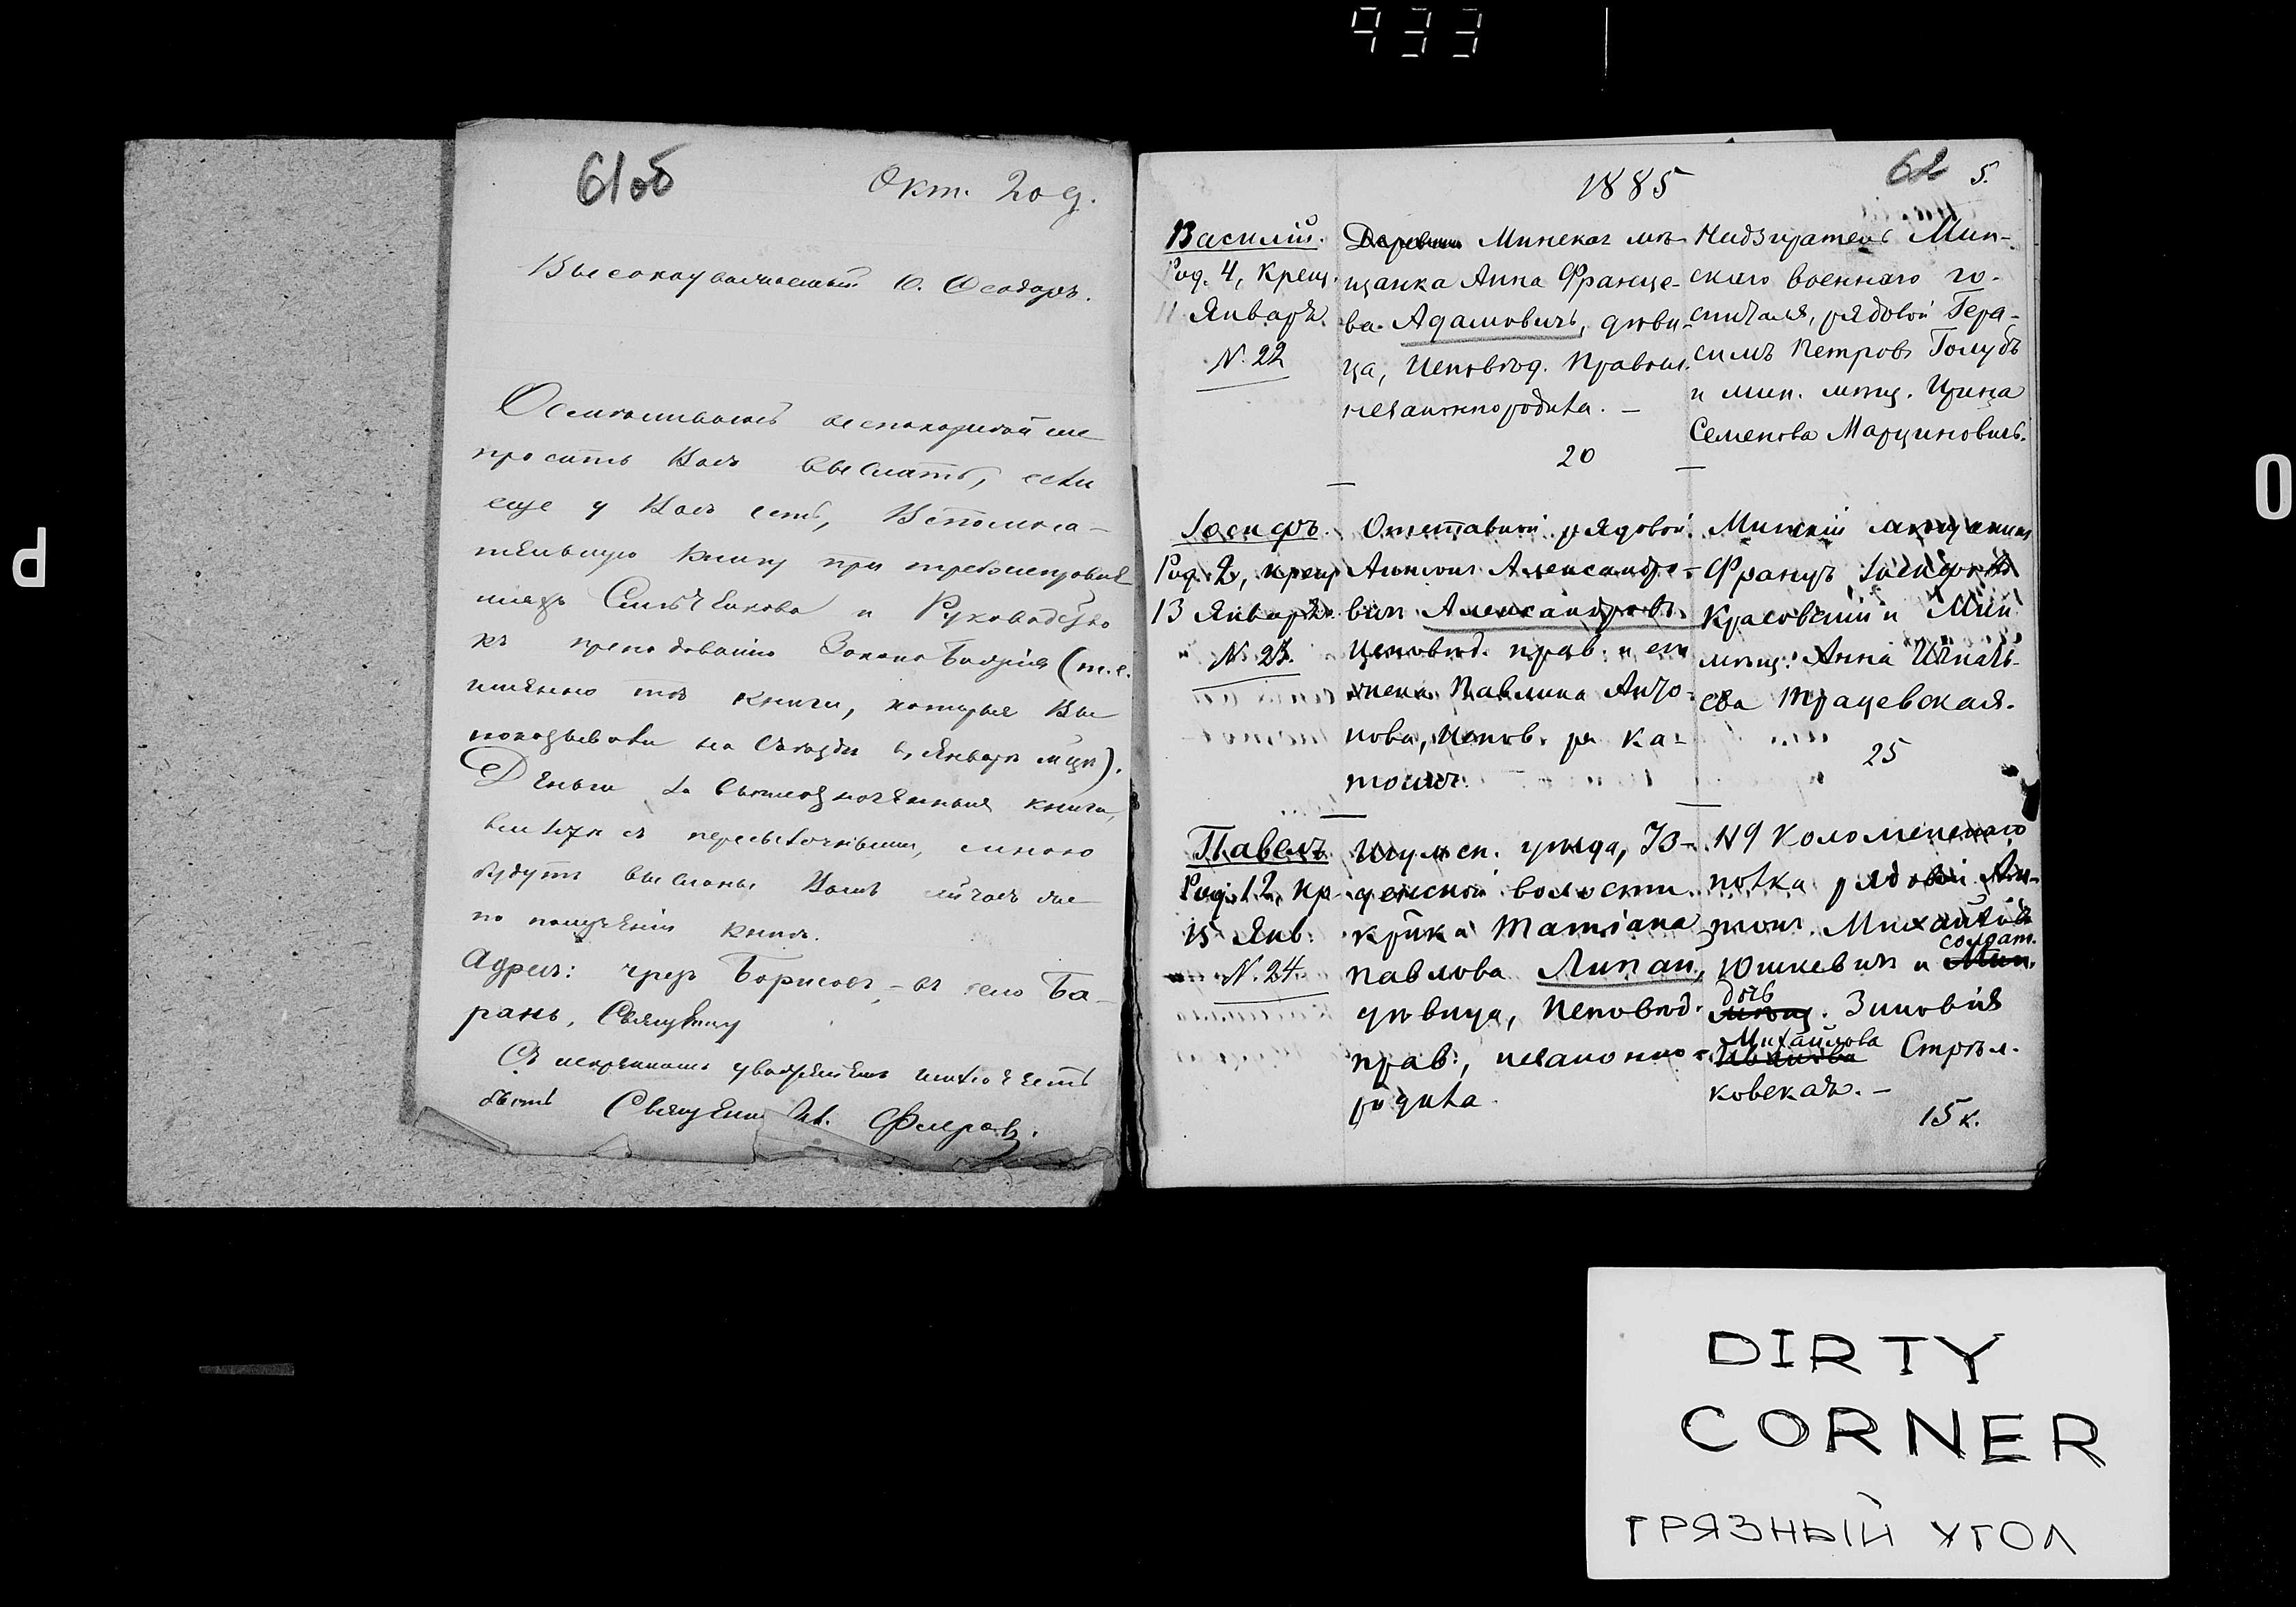 433
61об
Окт. 20 д.
Высокоуважаемый О. Ѳеодоръ.
Осмѣливаюсь
просить Васъ выслать, если
еще у Васъ есть, Вспомога-
тельную книгу при
Сильченкова и Руководство
къ преподаванію Закона Божія (т.е.
именно тѣ книги, которыя Вы
показывали на съѣздѣ въ Январѣ м-цѣ).
Деньги за вышеозначенныя книги,
вмѣстѣ съ пересылочными, мною
будутъ высланы Вамъ
по полученіи книгъ.
Адресъ: чрезъ Борисовъ, – въ село Ба-
рань, Священнику
Съ искреннимъ уваженіемъ имѣю честь
быть Священн.
1885
62 5.
Василій.
Род. 4, крещ.
11 Января.
N. 22
Минская мѣ-
щанка Анна Франце-
ва Адамовичъ, дѣви-
ца, Исповѣд. Правосл.
незаконнородила. –
20
Надзиратель Мин-
скаго военнаго го-
спиталя, рядовой Гера-
симъ Петровъ Голубъ
и мин. мѣщ. Ирина
Семенова Марциновичъ.
Іосифъ.
Род. 2, крещ
13 Января.
N. 23.
Отставной рядовой
Антонъ Александро-
вичъ Александровъ
Исповѣд. прав. и его
жена Павлина Анто-
нова, Испов. р. ка-
толич.
Минскій мѣщанинъ
Францъ Іосифовъ
Красовскій и Мин
мѣщ. Анна Игнать-
ева Трацевская.
25
Павелъ
Род. 12, кр
15 Янв.
N. 24.
Игумен. уѣзда, Уз-
денской волости
кр-ка Татіана
Павлова Липай,
дѣвица, Исповѣд.
прав., незаконно-
родила.
119 Коломенскаго
полка рядовой Ан-
тонъ Михайловъ
солдат.
Юшкевичъ и Мин.
дочь
мѣщ. Зиновія
Михайлова
Стрѣл-
ковская. –
15 к.
DIRTY
CORNER
ГРЯЗНЫЙ УГОЛ